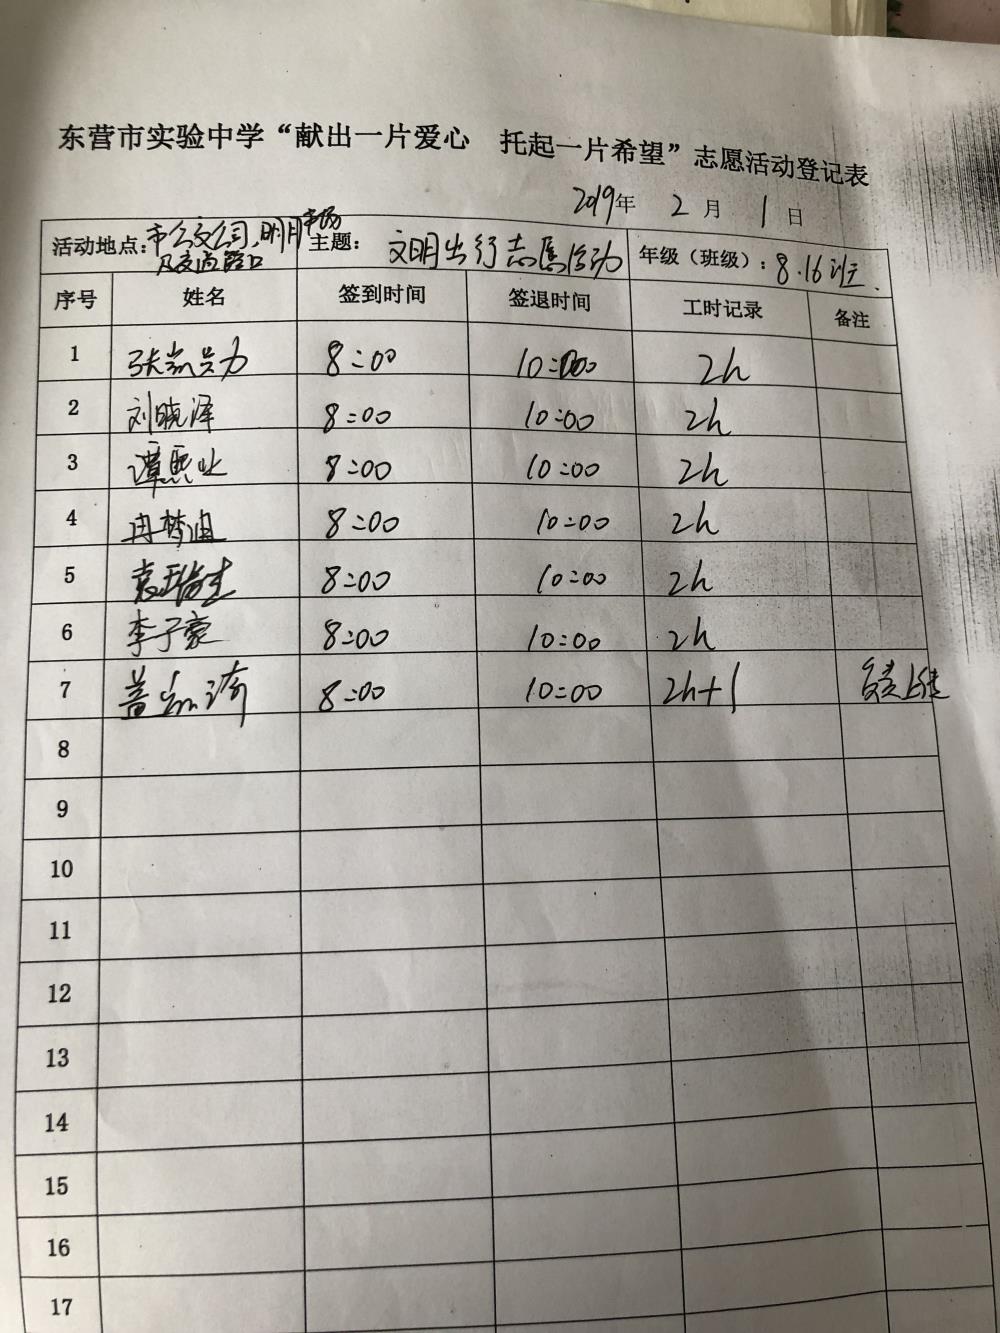 东营市实验中学“献出一片爱心 托起一片希望”志愿活动登记表
2019年 2月 1日
活动地点：市公交公司、明月市场及交通路口 主题：文明出行志愿活动 年级（班级）：8.16班.
序号 姓名 签到时间 签退时间 工时记录 备注
1 8:00 10:00 2h
2 刘晓泽 8:00 10:00 2h
3 谭熙业 8:00 10:00 2h
4 冉梦 8:00 10:00 2h
5 袁 8:00 10:00 2h
6 李子豪 8:00 10:00 2h
7 盖 8:00 10:00 2h+1 负责上传
8
9
10
11
12
13
14
15
16
17